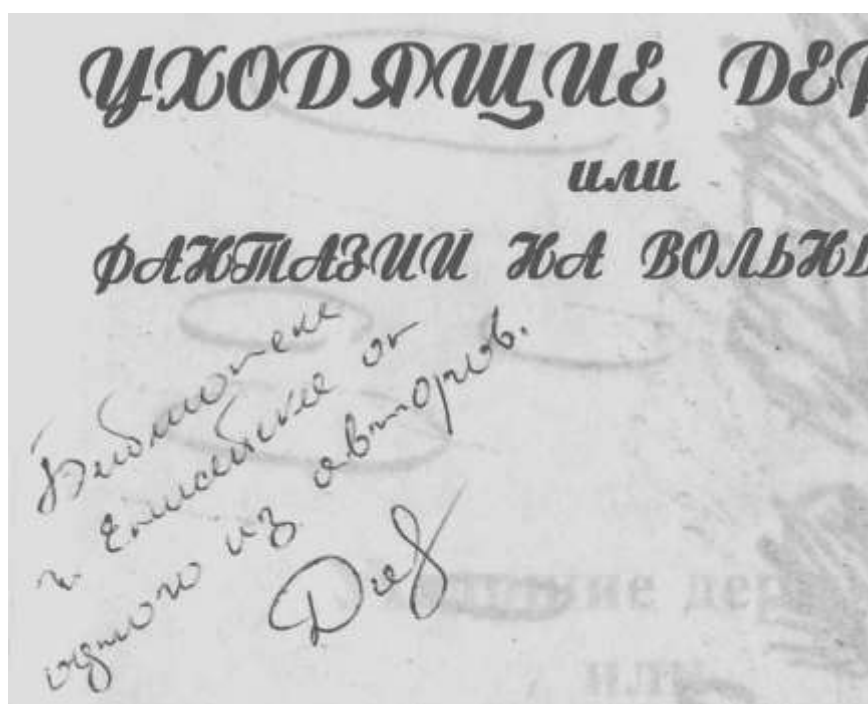 УХОДЯЩИЕ ДЕР
или
ФАНТАЗИИ НА ВОЛЬНЫ
Библиотеке
г. Енисейска от
одного из авторов.